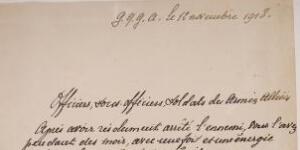 G.Q.G.A. le 12 novembre 1918.
Officiers, sous-officiers, soldats des Armées Alliées
Après avoir résolument arrêté l'ennemi, vous l'avez
pendant des mois, avec une foi et une énergie